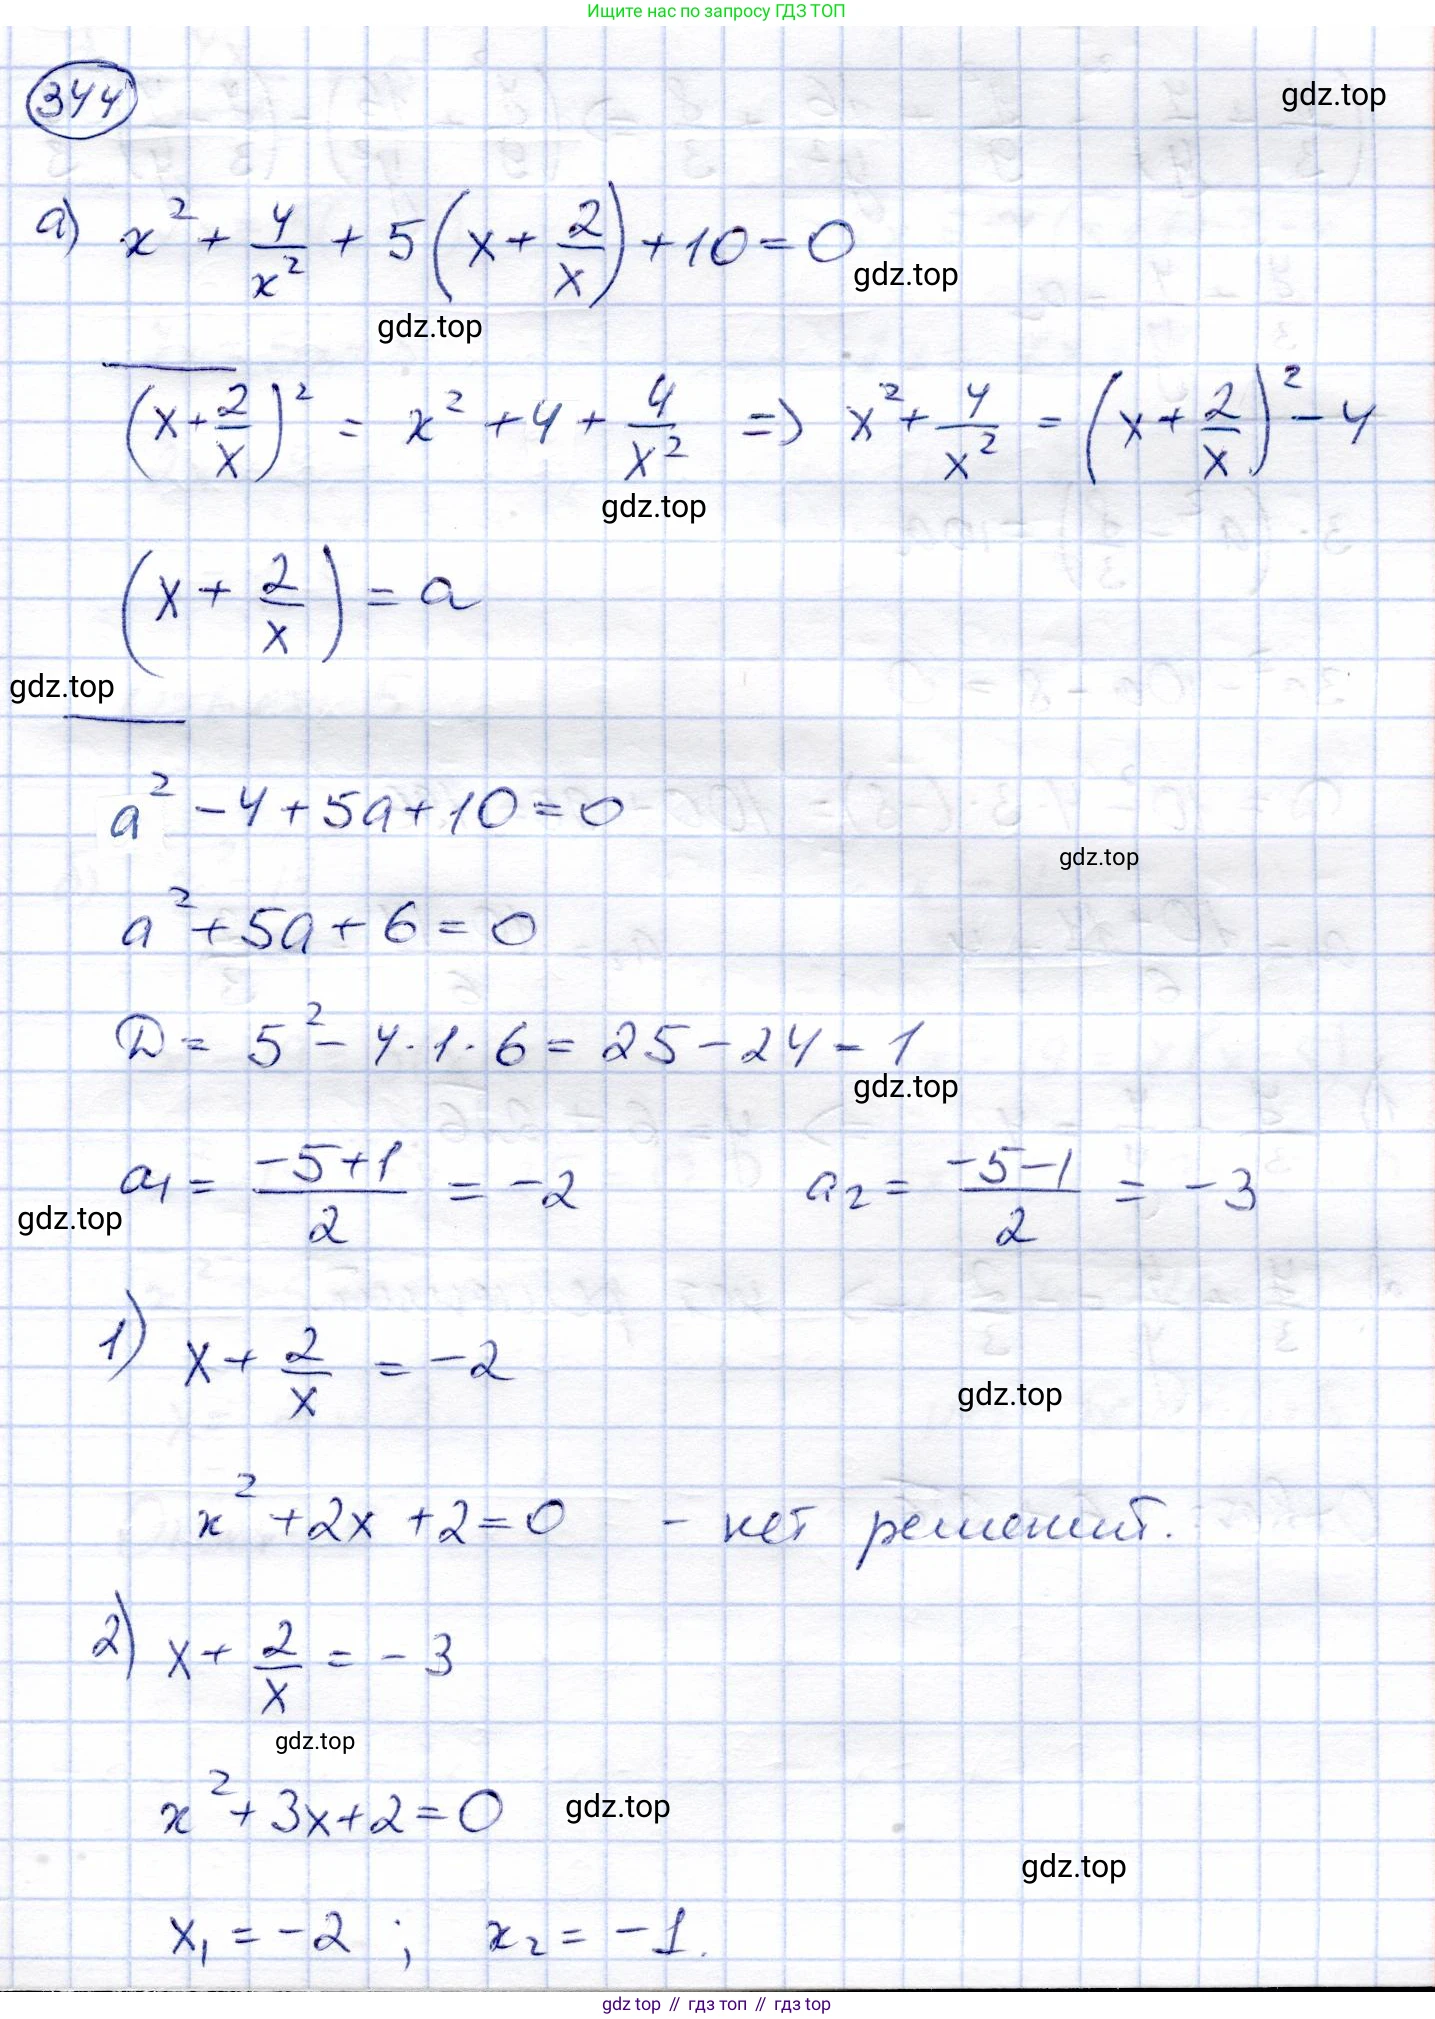 Ищите нас по запросу ГДЗ ТОП
344
gdz.top
а) x² + 4/x² + 5(x + 2/x) + 10 = 0
gdz.top
gdz.top
(x + 2/x)² = x² + 4 + 4/x² => x² + 4/x² = (x + 2/x)² - 4
gdz.top
(x + 2/x) = a
gdz.top
a² - 4 + 5a + 10 = 0
gdz.top
a² + 5a + 6 = 0
D = 5² - 4·1·6 = 25 - 24 = 1
gdz.top
a₁ = (-5+1)/2 = -2 a₂ = (-5-1)/2 = -3
gdz.top
1) x + 2/x = -2
gdz.top
x² + 2x + 2 = 0 - нет решений.
2) x + 2/x = -3
gdz.top
x² + 3x + 2 = 0
gdz.top
gdz.top
x₁ = -2 ; x₂ = -1.
gdz top // гдз топ // gdz top